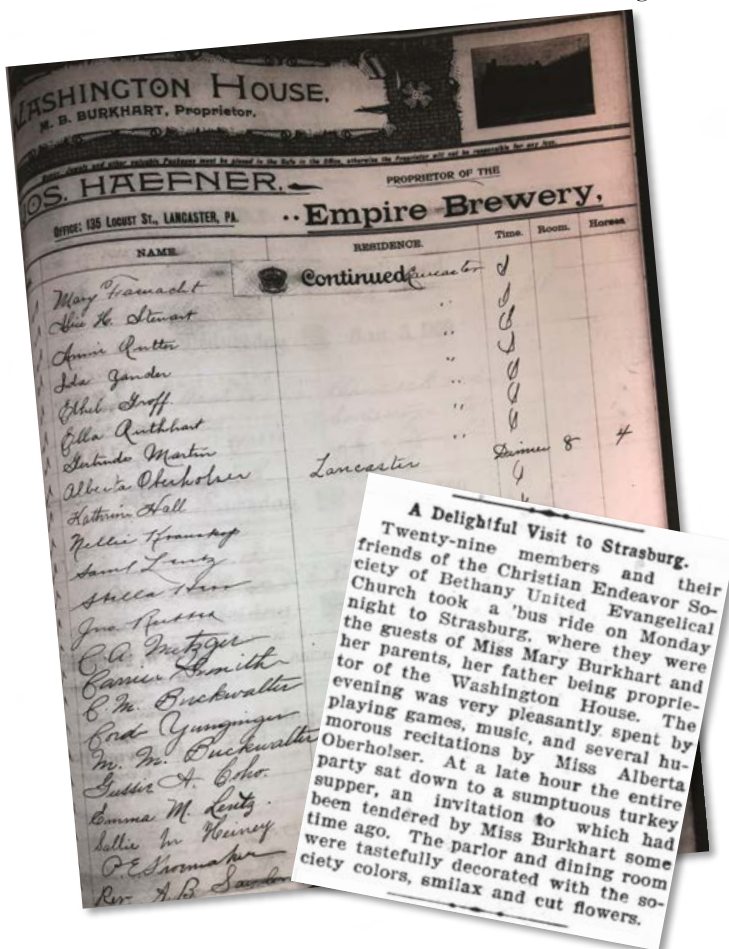 WASHINGTON HOUSE,
M. B. BURKHART, Proprietor.
Money, Jewels and other valuable Packages must be placed in the Safe in the Office, otherwise the Proprietor will not be responsible for any loss.
JOS. HAEFNER,
PROPRIETOR OF THE
OFFICE: 135 LOCUST ST., LANCASTER, PA.
..Empire Brewery,
NAME. RESIDENCE. Time. Room. Horses
Continued Lancaster
Mary
Alice H. Stewart "
Annie Rutter
Ida Zander "
Ethel Groff
Ella "
Gertrude Martin "
Alberta Oberholser Lancaster Dinner 8 4
Kathrin Hall
Nellie
Saml Lentz
Stella
Jno Russel
C. A. Metzger
Carrie Smith
C. M. Buckwalter
Yunginger
M. M. Buckwalter
Gussie A. Coho.
Emma M. Lentz.
Sallie M Heiney
P. E. Shoemaker
Rev. A. B.
A Delightful Visit to Strasburg.
Twenty-nine members and their
friends of the Christian Endeavor So-
ciety of Bethany United Evangelical
Church took a 'bus ride on Monday
night to Strasburg, where they were
the guests of Miss Mary Burkhart and
her parents, her father being proprie-
tor of the Washington House. The
evening was very pleasantly spent by
playing games, music, and several hu-
morous recitations by Miss Alberta
Oberholser. At a late hour the entire
party sat down to a sumptuous turkey
supper, an invitation to which had
been tendered by Miss Burkhart some
time ago. The parlor and dining room
were tastefully decorated with the so-
ciety colors, smilax and cut flowers.